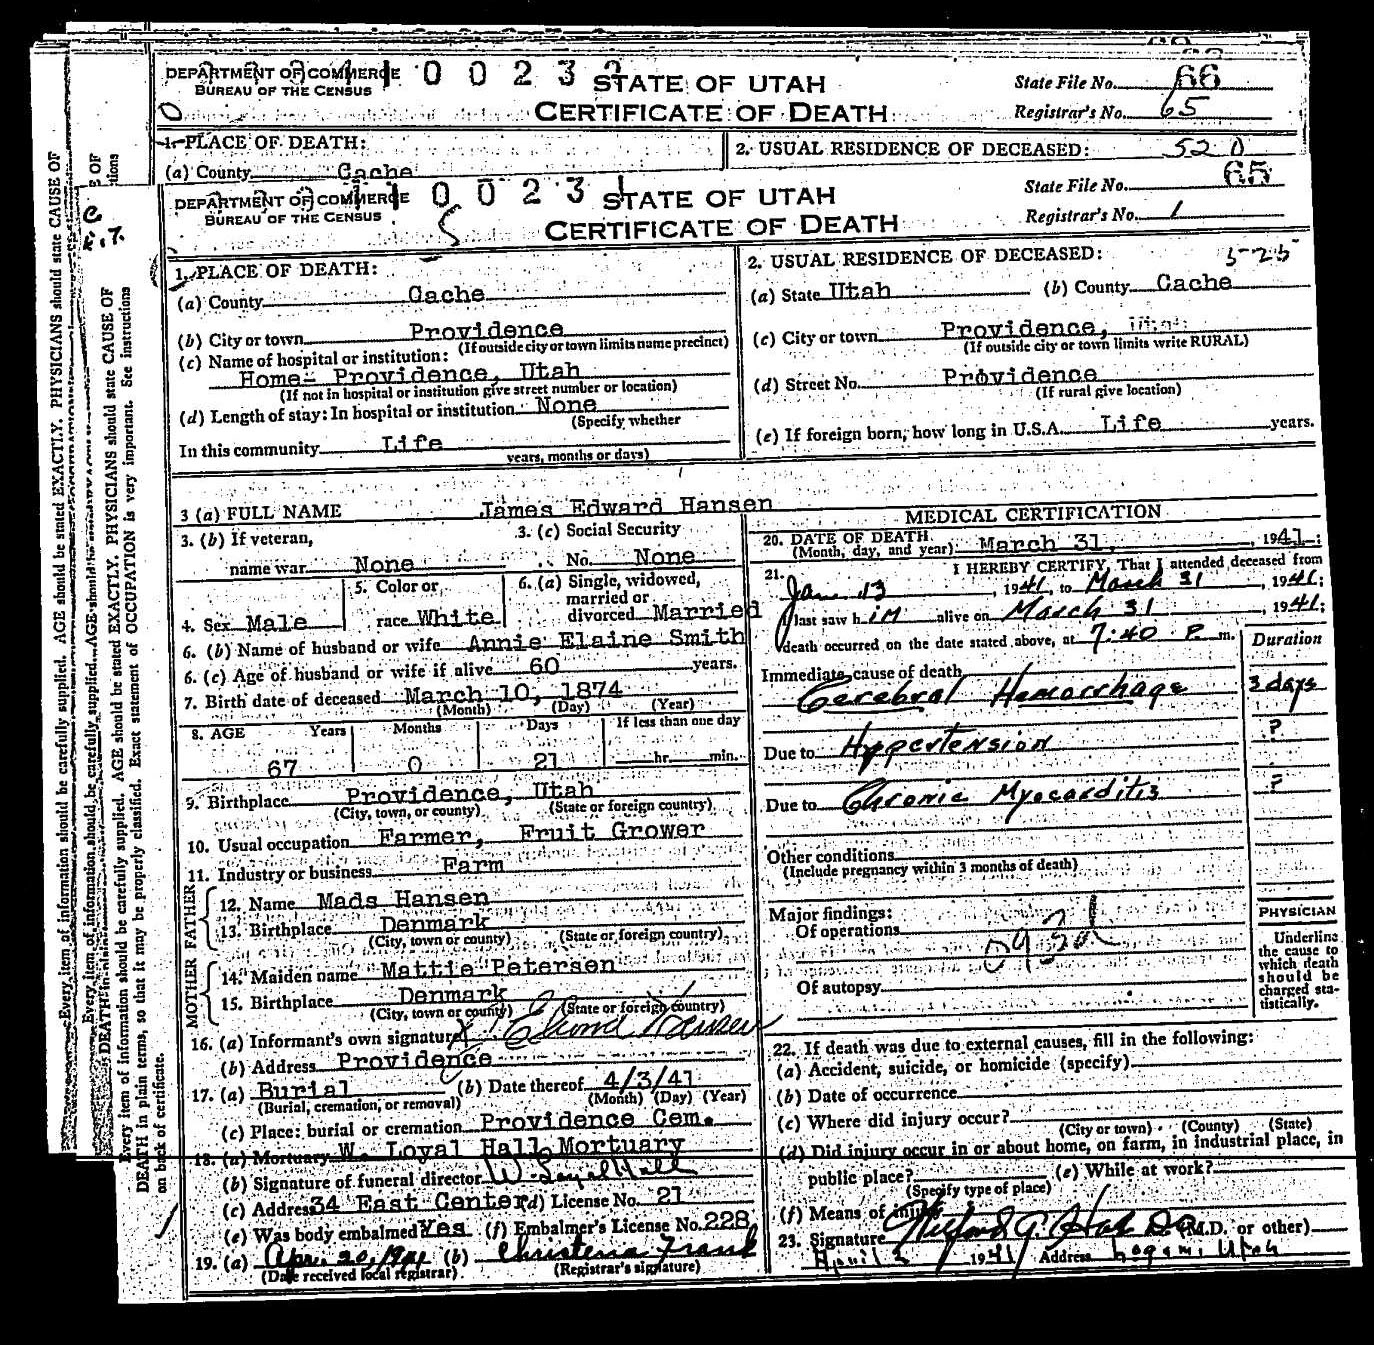 DEPARTMENT OF COMMERCE
BUREAU OF THE CENSUS
0 0 2 3
STATE OF UTAH
CERTIFICATE OF DEATH
State File No. 66
Registrar's No. 65
1. PLACE OF DEATH:
(a) County Cache
2. USUAL RESIDENCE OF DECEASED: 520
DEPARTMENT OF COMMERCE
BUREAU OF THE CENSUS
0 0 2 3 1
STATE OF UTAH
CERTIFICATE OF DEATH
State File No. 65
Registrar's No. 1
1. PLACE OF DEATH:
(a) County Cache
(b) City or town Providence
(If outside city or town limits name precinct)
(c) Name of hospital or institution:
Home- Providence, Utah
(If not in hospital or institution give street number or location)
(d) Length of stay: In hospital or institution None
(Specify whether
In this community Life
years, months or days)
2. USUAL RESIDENCE OF DECEASED: 5-25
(a) State Utah (b) County Cache
(c) City or town Providence, Utah
(If outside city or town limits write RURAL)
(d) Street No. Providence
(If rural give location)
(e) If foreign born, how long in U.S.A. Life years.
3 (a) FULL NAME James Edward Hansen
3. (b) If veteran,
name war None
3. (c) Social Security
No. None
4. Sex Male
5. Color or
race White
6. (a) Single, widowed,
married or
divorced Married
6. (b) Name of husband or wife Annie Elaine Smith
6. (c) Age of husband or wife if alive 60 years.
7. Birth date of deceased March 10, 1874
(Month) (Day) (Year)
8. AGE Years Months Days If less than one day
67 0 21 hr. min.
9. Birthplace Providence, Utah
(City, town, or county) (State or foreign country)
10. Usual occupation Farmer, Fruit Grower
11. Industry or business Farm
FATHER
12. Name Mads Hansen
13. Birthplace Denmark
(City, town or county) (State or foreign country)
MOTHER
14. Maiden name Mattie Petersen
15. Birthplace Denmark
(City, town or county) (State or foreign country)
16. (a) Informant's own signature X Hansen
(b) Address Providence
17. (a) Burial (b) Date thereof 4/3/41
(Burial, cremation, or removal) (Month) (Day) (Year)
(c) Place: burial or cremation Providence Cem.
18. (a) Mortuary W. Loyal Hall Mortuary
(b) Signature of funeral director W. Loyal Hall
(c) Address 34 East Center (d) License No. 21
(e) Was body embalmed Yes (f) Embalmer's License No. 228
19. (a) Apr. 20, 1941 (b) Christena Frank
(Date received local registrar) (Registrar's signature)
MEDICAL CERTIFICATION
20. DATE OF DEATH
(Month, day, and year) March 31, 1941;
21. I HEREBY CERTIFY, That I attended deceased from
Jan 13, 1941, to March 31, 1941;
I last saw him alive on March 31, 1941;
death occurred on the date stated above, at 7:40 P m.
Duration
Immediate cause of death
Cerebral Hemorrhage 3 days
Due to Hypertension ?
Due to Chronic Myocarditis ?
Other conditions
(Include pregnancy within 3 months of death)
Major findings:
Of operations
Of autopsy
PHYSICIAN
Underline
the cause to
which death
should be
charged sta-
tistically.
22. If death was due to external causes, fill in the following:
(a) Accident, suicide, or homicide (specify)
(b) Date of occurrence
(c) Where did injury occur?
(City or town) (County) (State)
(d) Did injury occur in or about home, on farm, in industrial place, in
public place? (e) While at work?
(Specify type of place)
(f) Means of injury
23. Signature (M.D. or other)
April 1941 Address Logan, Utah
Every item of information should be carefully supplied. AGE should be stated EXACTLY. PHYSICIANS should state CAUSE OF
DEATH in plain terms, so that it may be properly classified. Exact statement of OCCUPATION is very important. See instructions
on back of certificate.
Every item of information should be carefully supplied. AGE should be stated EXACTLY. PHYSICIANS should state CAUSE OF